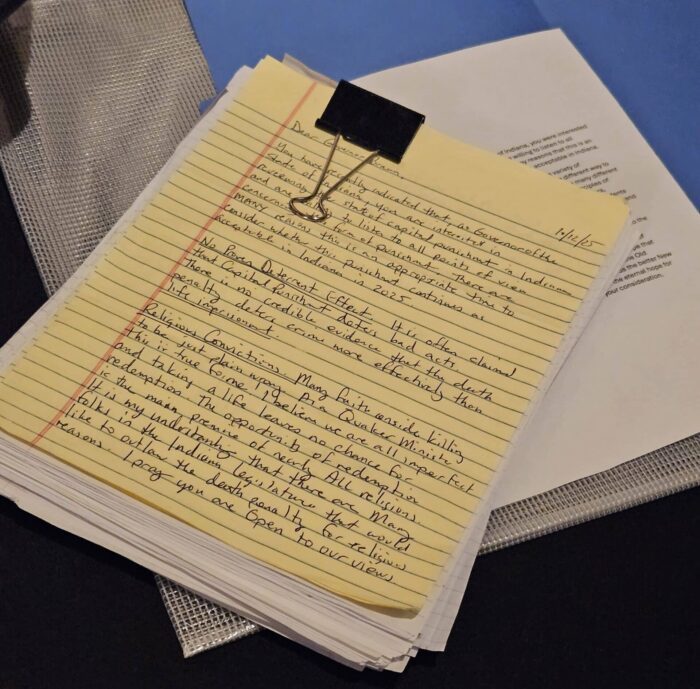 Dear Governor
10/12/25
You have recently indicated that as Governor of the
State of Indiana, you are interested in
reviewing the state of capital punishment in Indiana
and are willing to listen to all points of view
concerning this form of punishment. There are
MANY reasons this is an appropriate time to
consider whether this punishment continues as
acceptable in Indiana in 2025
No Proven Deterrent Effect. It is often claimed
that Capital Punishment deters bad acts.
There is no credible evidence that the death
penalty deters crime more effectively then
life imprisonment.
Religious Convictions. Many faiths consider killing
to be just plain wrong. As a Quaker Minister
this is true to me. I believe we are all imperfect
and taking a life leaves no chance for
redemption. The opportunity of redemption
is the main premise of nearly All religions
It is my understanding that there are Many
folks in the Indiana legislature that would
like to outlaw the death penalty for religious
reasons. I pray you are open to our views
of Indiana, you were interested
willing to listen to all
reasons that this is an
acceptable in Indiana.
variety of
a different way to
many different
to the
that
Old
the better New
the eternal hope for
your consideration.